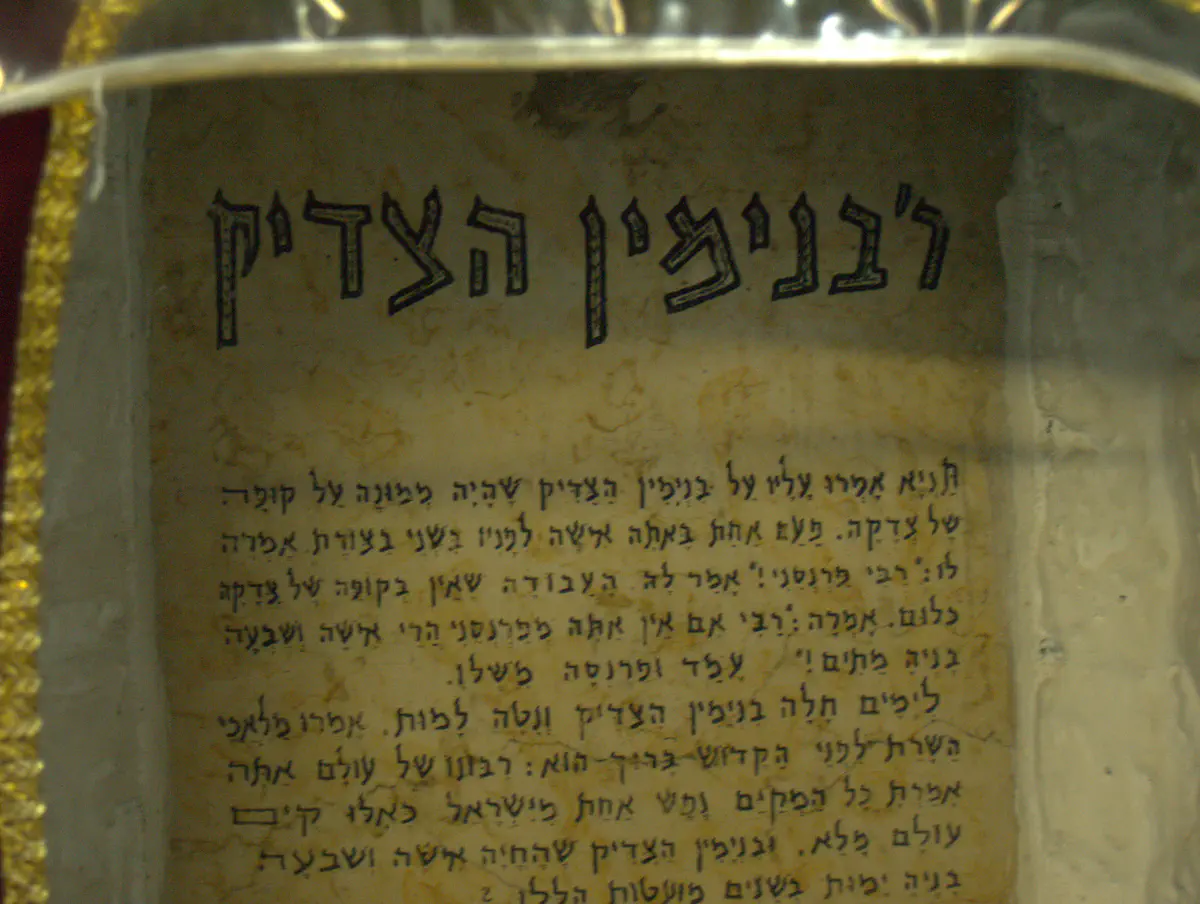 ר' בנימין הצדיק
תַּנְיָא אָמְרוּ עָלָיו עַל בִּנְיָמִין הַצַּדִּיק שֶׁהָיָה מְמוּנֶּה עַל קוּפָּה
שֶׁל צְדָקָה. פַּעַם אַחַת בָּאתָה אִישָׁה לְפָנָיו בִּשְׁנֵי בַּצּוֹרֶת אָמְרָה
לוֹ: "רַבִּי פַּרְנְסֵנִי!" אָמַר לָהּ הָעֲבוֹדָה שֶׁאֵין בְּקוּפָּה שֶׁל צְדָקָה
כְּלוּם. אָמְרָה: "רַבִּי אִם אֵין אַתָּה מְפַרְנְסֵנִי הֲרֵי אִישָׁה וְשִׁבְעָה
בָּנֶיהָ מֵתִים!" עָמַד וּפִרְנְסָהּ מִשֶּׁלּוֹ.
לְיָמִים חָלָה בִּנְיָמִין הַצַּדִּיק וְנָטָה לָמוּת. אָמְרוּ מַלְאֲכֵי
הַשָּׁרֵת לִפְנֵי הַקָּדוֹשׁ בָּרוּךְ הוּא: רִבּוֹנוֹ שֶׁל עוֹלָם אַתָּה
אָמַרְתָּ כָּל הַמְקַיֵּם נֶפֶשׁ אַחַת מִיִּשְׂרָאֵל כְּאִלּוּ קִיֵּם
עוֹלָם מָלֵא. וּבִנְיָמִין הַצַּדִּיק שֶׁהֶחֱיָה אִישָׁה וְשִׁבְעָה
בָּנֶיהָ יָמוּת בְּשָׁנִים מוּעָטוֹת הַלָּלוּ ?